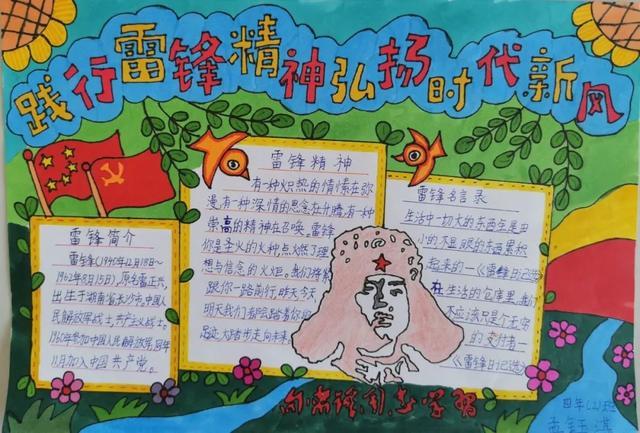 践行雷锋精神弘扬时代新风
雷锋简介
雷锋(1940年12月18日~
1962年8月15日),原名雷正兴,
出生于湖南省长沙市,中国人
民解放军战士,共产主义战士。
1960年参加中国人民解放军,同年
11月加入中国共产党。
雷锋精神
有一种炽热的情愫在弥
漫有一种深情的思念在升腾,有一种
崇高的精神在召唤。雷锋
你是圣火的火种,点燃了理
想与信念的火炬。我们将紧
跟你一路前行,昨天今天
明天我们都会踏着你的
足迹大踏步走向未来。
雷锋名言录
生活中一切大的东西全是由
小的不显眼的东西累积
起来的一《雷锋日记选》
在生活的仓库里,我们
不应该只是个无穷
的支付者一
《雷锋日记选》
向雷锋同志学习
四年(2)班